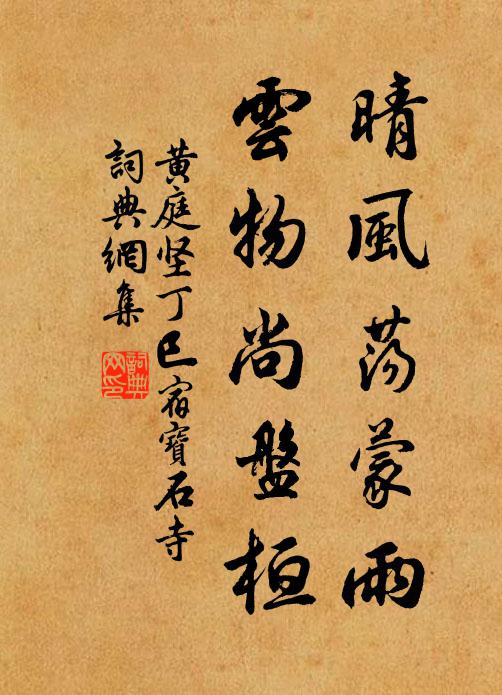 晴風蕩蒙雨
雲物尚盤桓
黃庭坚丁巳宿寶石寺
詞典網集
詞典網印